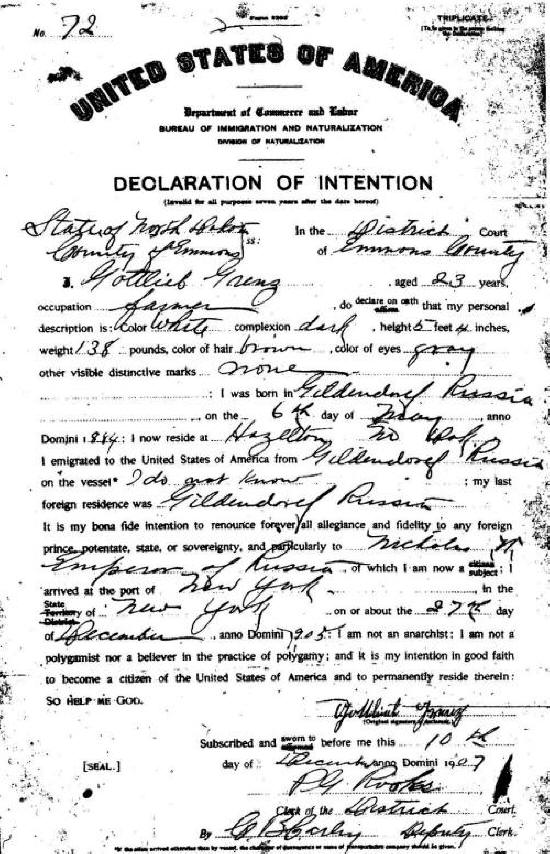 No. 72
TRIPLICATE
UNITED STATES OF AMERICA
Department of Commerce and Labor
BUREAU OF IMMIGRATION AND NATURALIZATION
DIVISION OF NATURALIZATION
DECLARATION OF INTENTION
(Invalid for all purposes seven years after the date hereof)
State of North Dakota
County of Emmons ss:
In the District Court
of Emmons County
I, Gottlieb Grenz, aged 23 years,
occupation farmer, do declare on oath that my personal
description is: Color White complexion dark, height 5 feet 4 inches,
weight 138 pounds, color of hair brown, color of eyes gray
other visible distinctive marks none
: I was born in Gildendorf Russia
, on the 6th day of May, anno
Domini 1884: I now reside at Hazelton No Dak
I emigrated to the United States of America from Gildendorf Russia
on the vessel* I do not know : my last
foreign residence was Gildendorf Russia
It is my bona fide intention to renounce forever all allegiance and fidelity to any foreign
prince, potentate, state, or sovereignty, and particularly to Nicholas
Emperor of Russia, of which I am now a citizen subject: I
arrived at the port of New York, in the
State Territory District of New York on or about the 27th day
of December, anno Domini 1905: I am not an anarchist: I am not a
polygamist nor a believer in the practice of polygamy; and it is my intention in good faith
to become a citizen of the United States of America and to permanently reside therein:
SO HELP ME GOD.
(Original signature of declarant.)
Subscribed and sworn to before me this 10th
[SEAL.] day of December anno Domini 1907
Clerk of the District Court.
By Deputy Clerk.